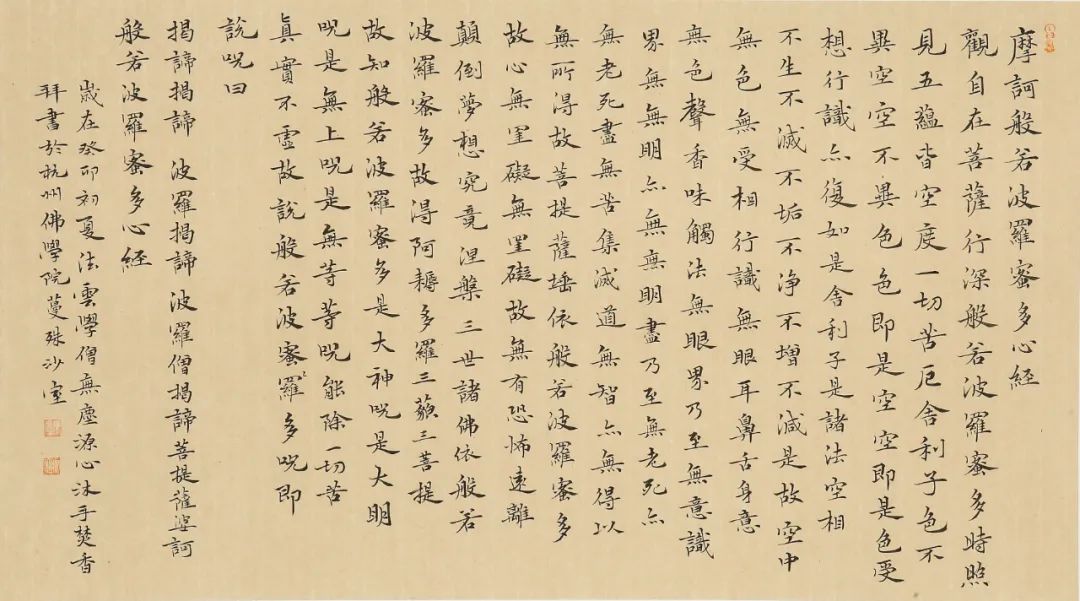 摩訶般若波羅蜜多心經
觀自在菩薩行深般若波羅蜜多時照
見五蘊皆空度一切苦厄舍利子色不
異空空不異色色即是空空即是色受
想行識亦復如是舍利子是諸法空相
不生不滅不垢不净不增不減是故空中
無色無受相行識無眼耳鼻舌身意
無色聲香味觸法無眼界乃至無意識
界無無明亦無無明盡乃至無老死亦
無老死盡無苦集滅道無智亦無得以
無所得故菩提薩埵依般若波羅蜜多
故心無罣礙無罣礙故無有恐怖遠離
顛倒夢想究竟涅槃三世諸佛依般若
波羅蜜多故得阿耨多羅三藐三菩提
故知般若波羅蜜多是大神呪是大明
呪是無上呪是無等等呪能除一切苦
真實不虛故說般若波蜜羅多呪即
說呪曰
揭諦揭諦 波羅揭諦 波羅僧揭諦菩提薩婆訶
般若波羅蜜多心經
歲在癸卯初夏法雲學僧無塵源心沐手焚香
拜書於杭州佛學院蔓殊沙室